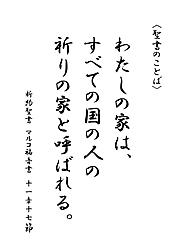 〈聖書のことば〉
わたしの家は、
すべての国の人の
祈りの家と呼ばれる。
新約聖書 マルコ福音書 十一章十七節